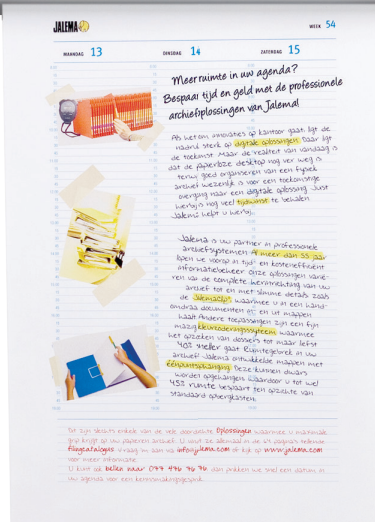 JALEMA
WEEK 54
MAANDAG 13
DINSDAG 14
ZATERDAG 15
Meer ruimte in uw agenda?
Bespaar tijd en geld met de professionele
archiefoplossingen van Jalema!
Als het om innovaties op kantoor gaat, ligt de
nadruk sterk op digitale oplossingen. Daar ligt
de toekomst. Maar de realiteit van vandaag is
dat de papierloze desktop nog ver weg is
terwijl goed organiseren van een fysiek
archief wezenlijk is voor een toekomstige
overgang naar een digitale oplossing. Juist
hierbij is nog veel tijdwinst te behalen.
Jalema helpt u hierbij.
Jalema is uw partner in professionele
archiefsystemen. Al meer dan 55 jaar
lopen we voorop in tijd- en kostenefficiënt
informatiebeheer. Onze oplossingen varië-
ren van de complete herinrichting van uw
archief tot en met slimme details zoals
de Jalemaclip, waarmee u in een hand-
omdraai documenten in- en uit mappen
haalt. Andere toepassingen zijn een fijn-
mazig kleurcoderingssysteem waarmee
het opzoeken van dossiers tot maar liefst
40% sneller gaat. Ruimtegebrek in uw
archief? Jalema ontwikkelde mappen met
éénpuntsophanging. Deze kunnen dwars
worden opgehangen waardoor u tot wel
45% ruimte bespaart ten opzichte van
standaard opbergkasten.
Dit zijn slechts enkele van de vele doordachte Oplossingen waarmee u maximale
grip krijgt op uw papieren archief. U vindt ze allemaal in de 64 pagina's tellende
filingcatalogus. Vraag hem aan via info@jalema.com of kijk op www.jalema.com
voor meer informatie.
U kunt ook bellen naar 077 476 76 76, dan prikken we snel een datum in
uw agenda voor een kennismakingsgesprek.